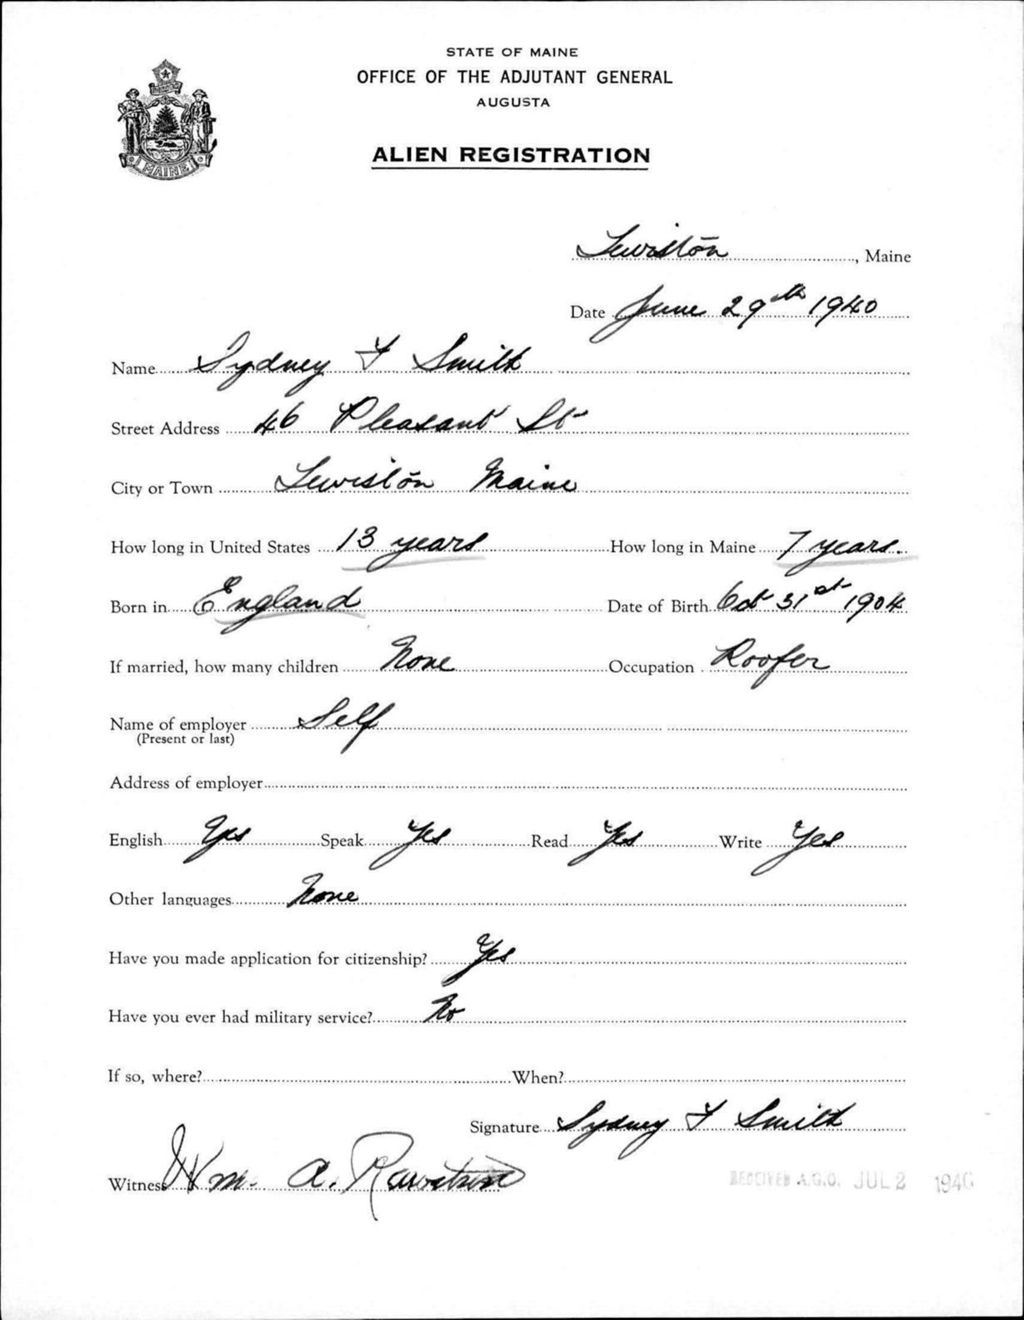 STATE OF MAINE
OFFICE OF THE ADJUTANT GENERAL
AUGUSTA
ALIEN REGISTRATION
MAINE
Lewiston, Maine
Date June 29th 1940
Name Sydney F Smith
Street Address 46 Pleasant St
City or Town Lewiston Maine
How long in United States 13 years How long in Maine 7 years.
Born in England Date of Birth Oct 31st 1904
If married, how many children None Occupation Roofer
Name of employer Self
(Present or last)
Address of employer
English Yes Speak Yes Read Yes Write Yes
Other languages None
Have you made application for citizenship? Yes
Have you ever had military service? No
If so, where? When?
Signature Sydney F Smith
Witness Wm. A.
RECEIVED A.G.O. JUL 2 1940